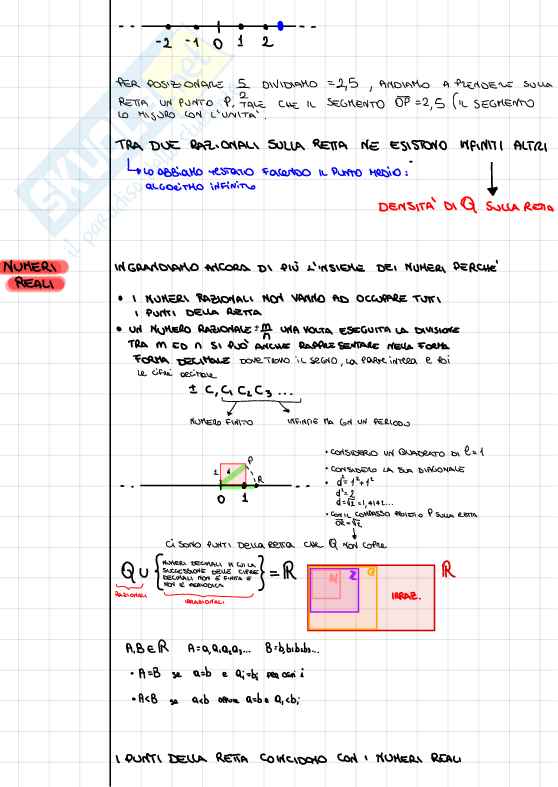 -2 -1 0 1 2
PER POSIZIONARE 5/2 DIVIDIAMO = 2,5 , ANDIAMO A PRENDERE SULLA
RETTA UN PUNTO P, TALE CHE IL SEGMENTO OP = 2,5 (IL SEGMENTO
LO MISURO CON L'UNITA'.
TRA DUE RAZIONALI SULLA RETTA NE ESISTONO INFINITI ALTRI
LO ABBIAMO TESTATO FACENDO IL PUNTO MEDIO:
ALGORITMO INFINITO
DENSITA' DI Q SULLA RETTA
NUMERI
REALI
INGRANDIAMO ANCORA DI PIÙ L'INSIEME DEI NUMERI PERCHE'
• I NUMERI RAZIONALI NON VANNO AD OCCUPARE TUTTI
I PUNTI DELLA RETTA
• UN NUMERO RAZIONALE = m/n UNA VOLTA ESEGUITA LA DIVISIONE
TRA M ED N SI PUÒ ANCHE RAPPRESENTARE NELLA FORMA
FORMA DECIMALE DOVE TROVO IL SEGNO, LA PARTE INTERA E POI
LE CIFRE DECIMALI
± C, C₁ C₂ C₃ ...
NUMERO FINITO INFINITE MA CON UN PERIODO
• CONSIDERO UN QUADRATO DI l = 1
• CONSIDERO LA SUA DIAGONALE
• d² = 1² + 1²
d² = 2
d = √2 = 1,4142...
• CON IL COMPASSO PUNTO P SULLA RETTA
OR = √2
1 1 P R
0 1
CI SONO PUNTI DELLA RETTA CHE Q NON COPRE
Q ∪ {NUMERI DECIMALI IN CUI LA
SUCCESSIONE DELLE CIFRE
DECIMALI NON È FINITA E
NON È PERIODICA} = R
RAZIONALI IRRAZIONALI
N Z Q IRRAZ. R
A,B ∈ R A = a,a₁a₂a₃... B = b,b₁b₂b₃...
• A=B se a=b e aᵢ=bᵢ per ogni i
• A<B se a<b oppure a=b e aᵢ<bᵢ
I PUNTI DELLA RETTA COINCIDONO CON I NUMERI REALI